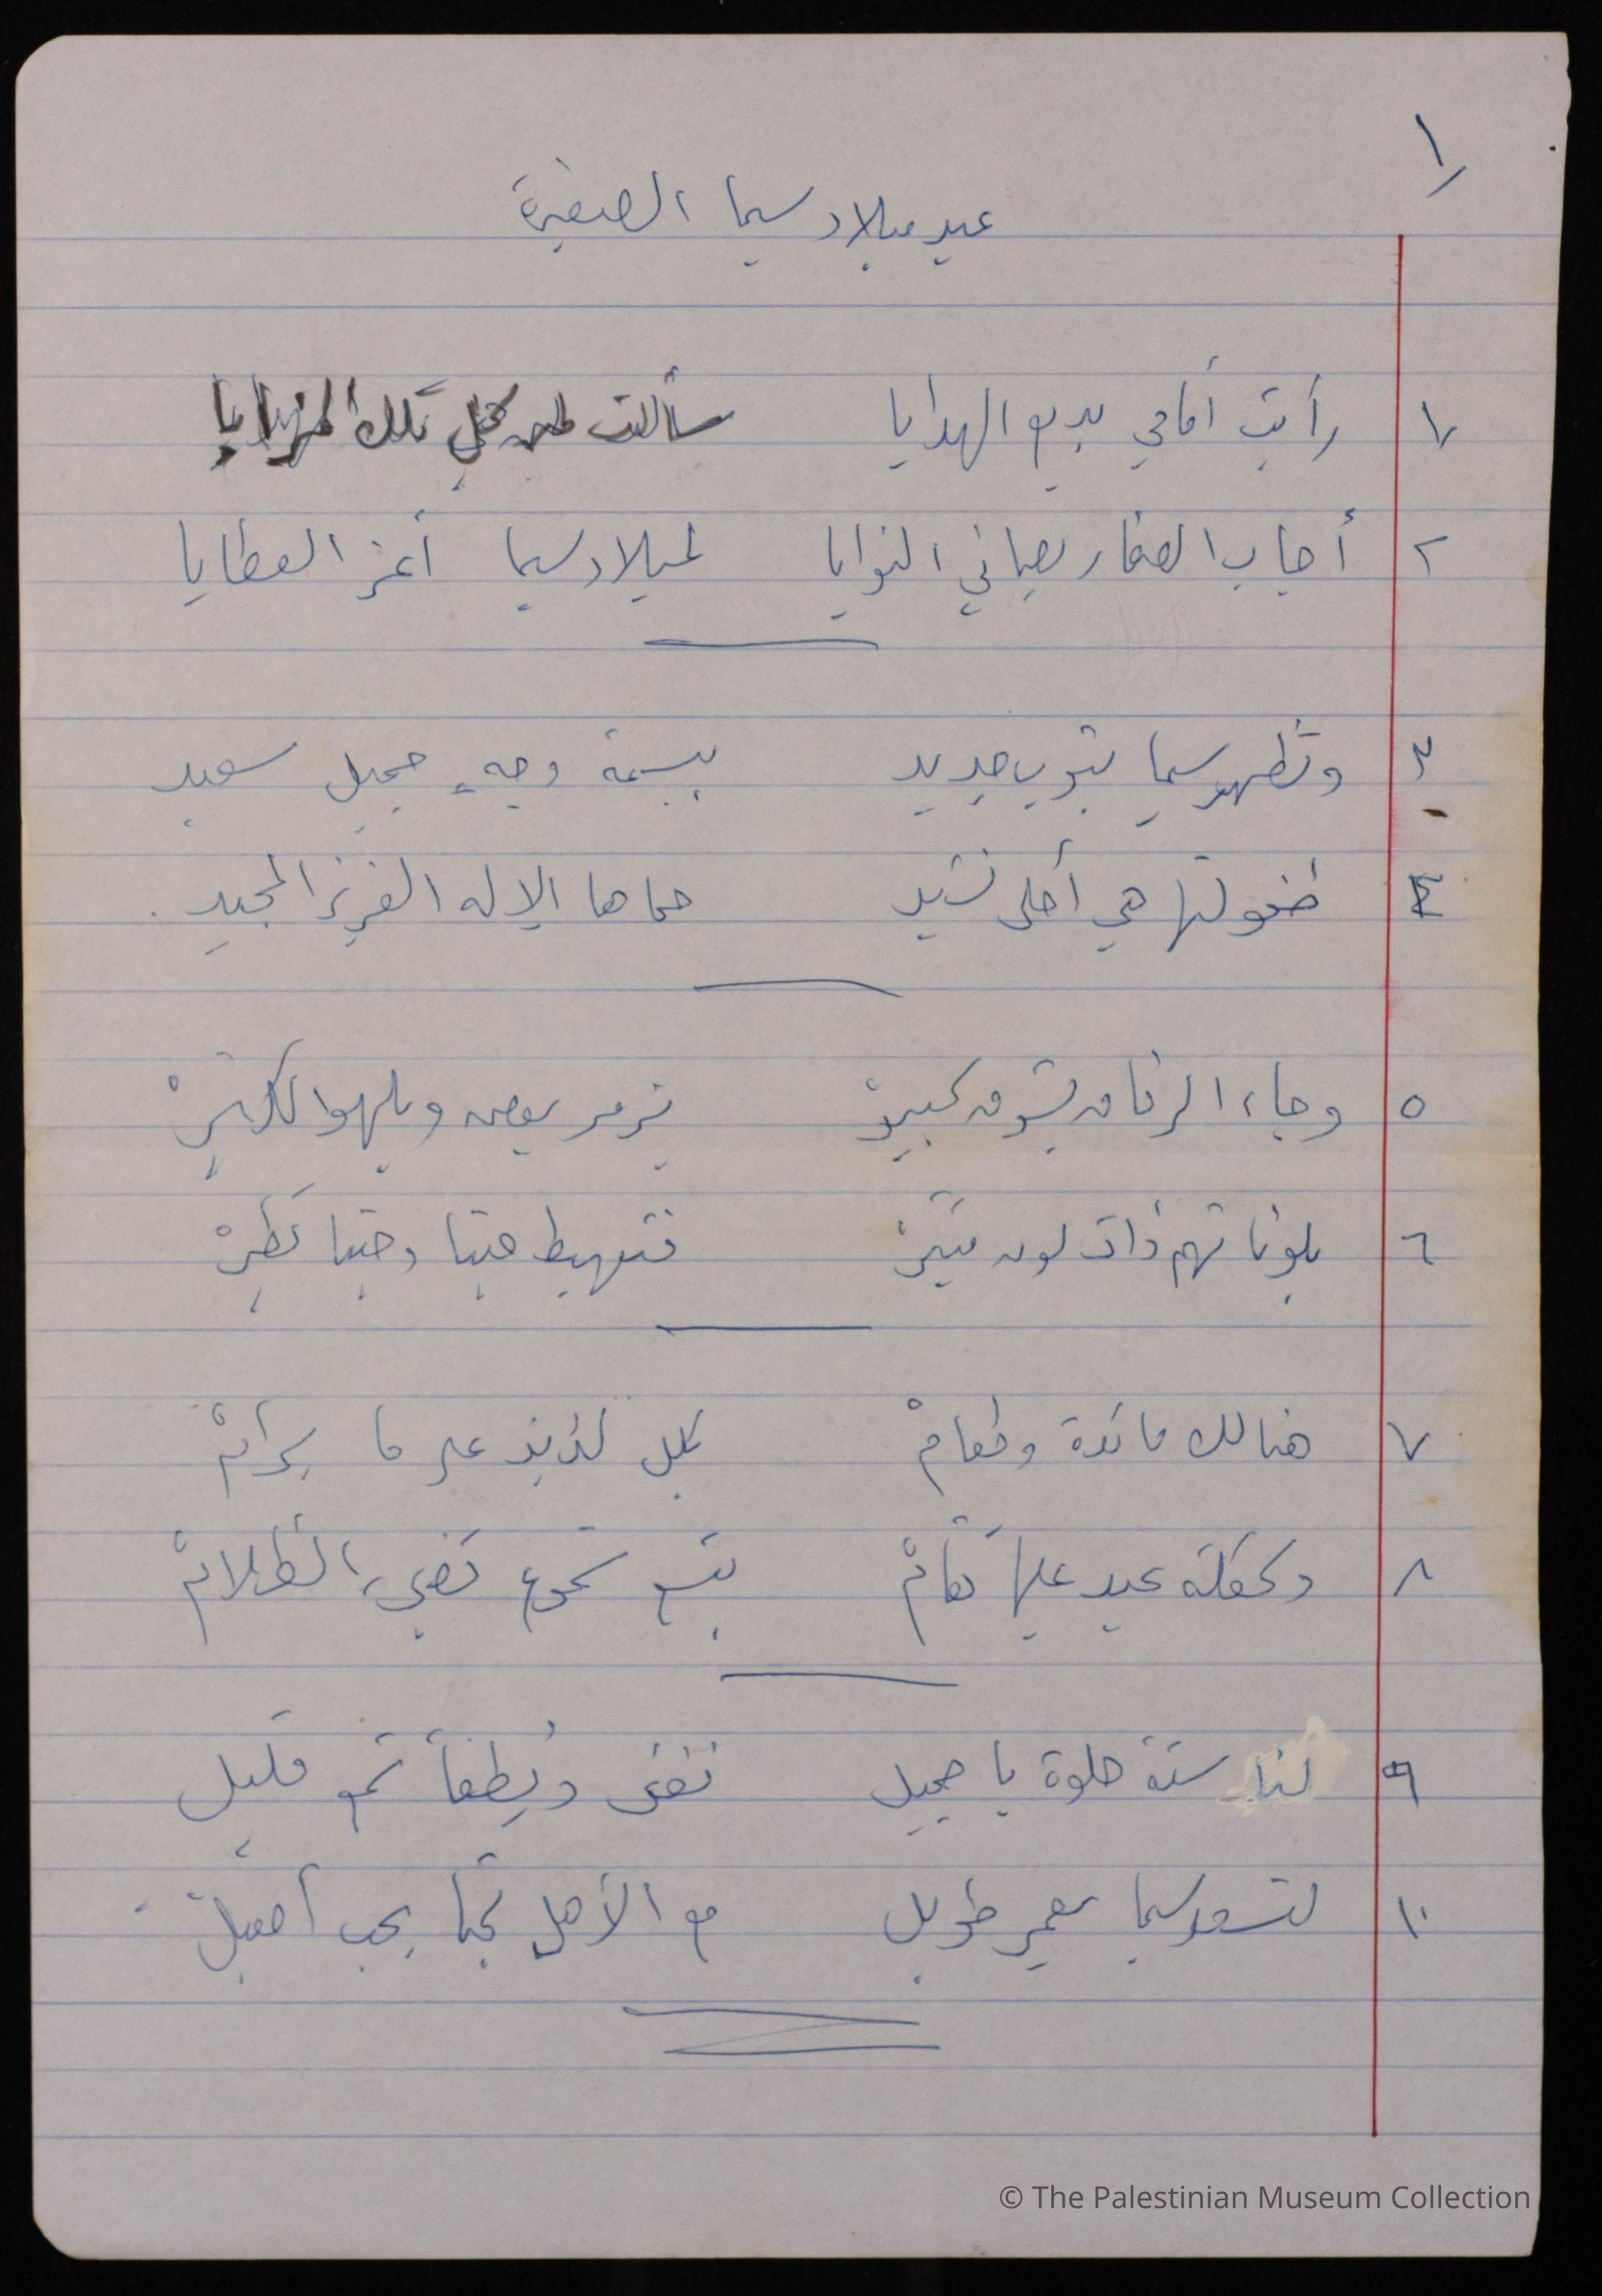 ١
عيد ميلاد سيما الصغيرة
١ رأيت أمامي بديع الهدايا سألت لمن كل تلك المزايا
٢ أجاب الصغار بصافي النوايا لميلاد سيما أعز العطايا
٣ وتظهر سيما بثوب جديد ببسمة وجهٍ جميل سعيد
٤ طفولتها هي أحلى نشيد حماها الإله العزيز المجيد
٥ وجاء الرفاق بشوق كبيرْ يزمر بعض ويلهو الكثيرْ
٦ بلوناتهم ذات لون مثيرْ فتهبط حينا وحينا تطيرْ
٧ هنالك مائدة وطعامْ بكل لذيذ على ما يرامْ
٨ وكعكة عيد عليها تقامْ بتسع شموع تضيء الظلامْ
٩ لنا سنة حلوة يا جميل تغنى ويُطفأ شمع قليل
١٠ لتسعد سيما بعمر طويل مع الأهل تحيا بحب أصيل
© The Palestinian Museum Collection